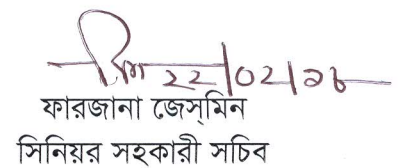 ২২/০২/১৮
ফারজানা জেস্‌মিন
সিনিয়র সহকারী সচিব